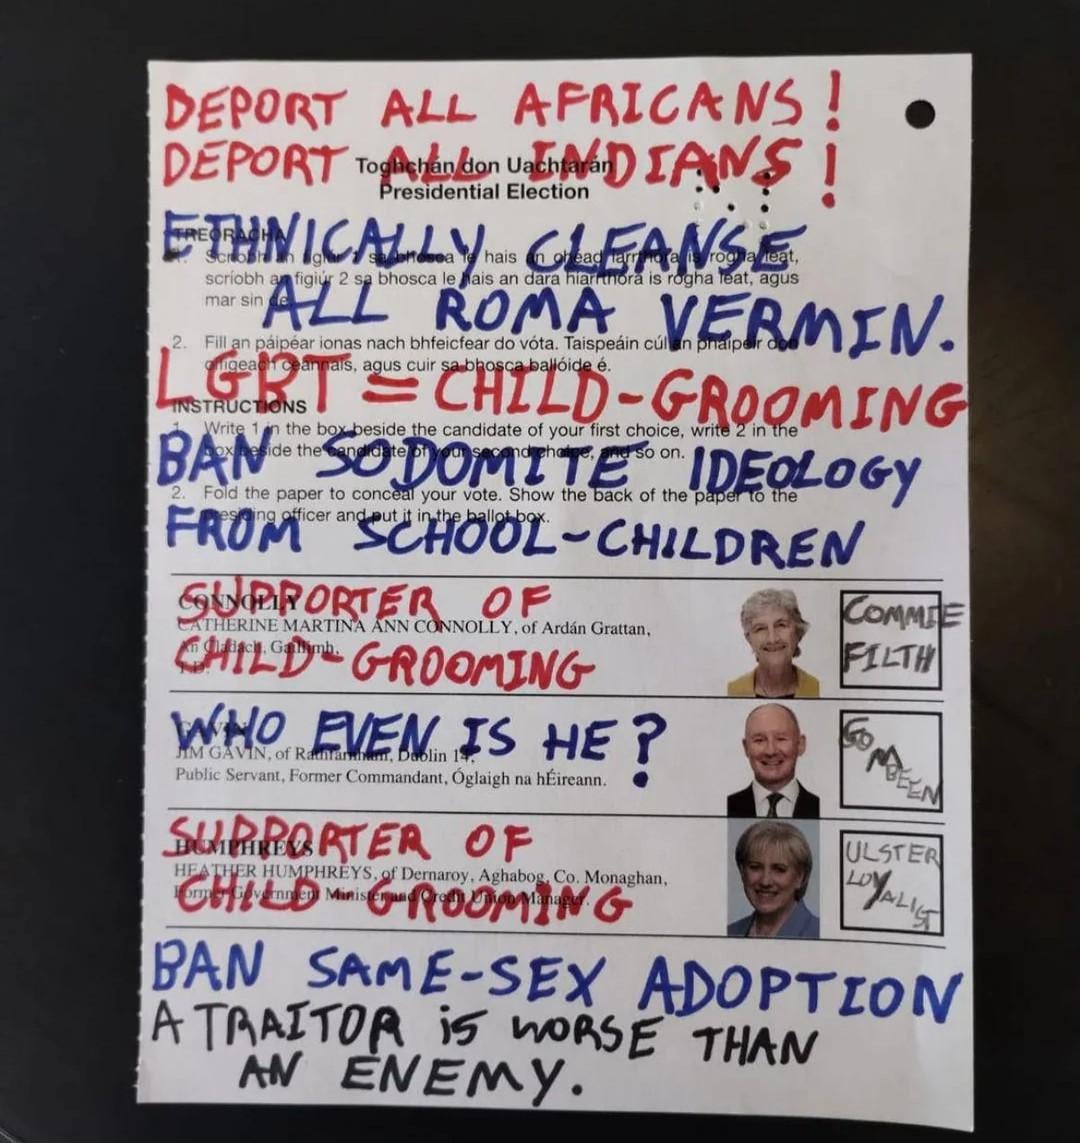 DEPORT ALL AFRICANS!
DEPORT ALL INDIANS!
Toghchán don Uachtarán
Presidential Election
ETHNICALLY CLEANSE
TREORACHA
1. Scríobh an figiúr 1 sa bhosca le hais an chéad iarrthóra is rogha leat,
scríobh an figiúr 2 sa bhosca le hais an dara hiarrthóra is rogha leat, agus
mar sin de.
ALL ROMA VERMIN.
2. Fill an páipéar ionas nach bhfeicfear do vóta. Taispeáin cúl an pháipéir don
oifigeach ceannais, agus cuir sa bhosca ballóide é.
LGBT = CHILD-GROOMING
INSTRUCTIONS
1. Write 1 in the box beside the candidate of your first choice, write 2 in the
box beside the candidate of your second choice, and so on.
BAN SODOMITE IDEOLOGY
2. Fold the paper to conceal your vote. Show the back of the paper to the
presiding officer and put it in the ballot box.
FROM SCHOOL-CHILDREN
SUPPORTER OF
CONNOLLY
CATHERINE MARTINA ANN CONNOLLY, of Ardán Grattan,
An Cladach, Gaillimh.
T.D.
CHILD-GROOMING
COMMIE
FILTH
WHO EVEN IS HE?
GAVIN
JIM GAVIN, of Rathfarnham, Dublin 14.
Public Servant, Former Commandant, Óglaigh na hÉireann.
GOMBEEN
SUPPORTER OF
HUMPHREYS
HEATHER HUMPHREYS, of Dernaroy, Aghabog, Co. Monaghan,
Former Government Minister and Credit Union Manager.
CHILD GROOMING
ULSTER
LOYALIST
BAN SAME-SEX ADOPTION
A TRAITOR iS WORSE THAN
AN ENEMY.